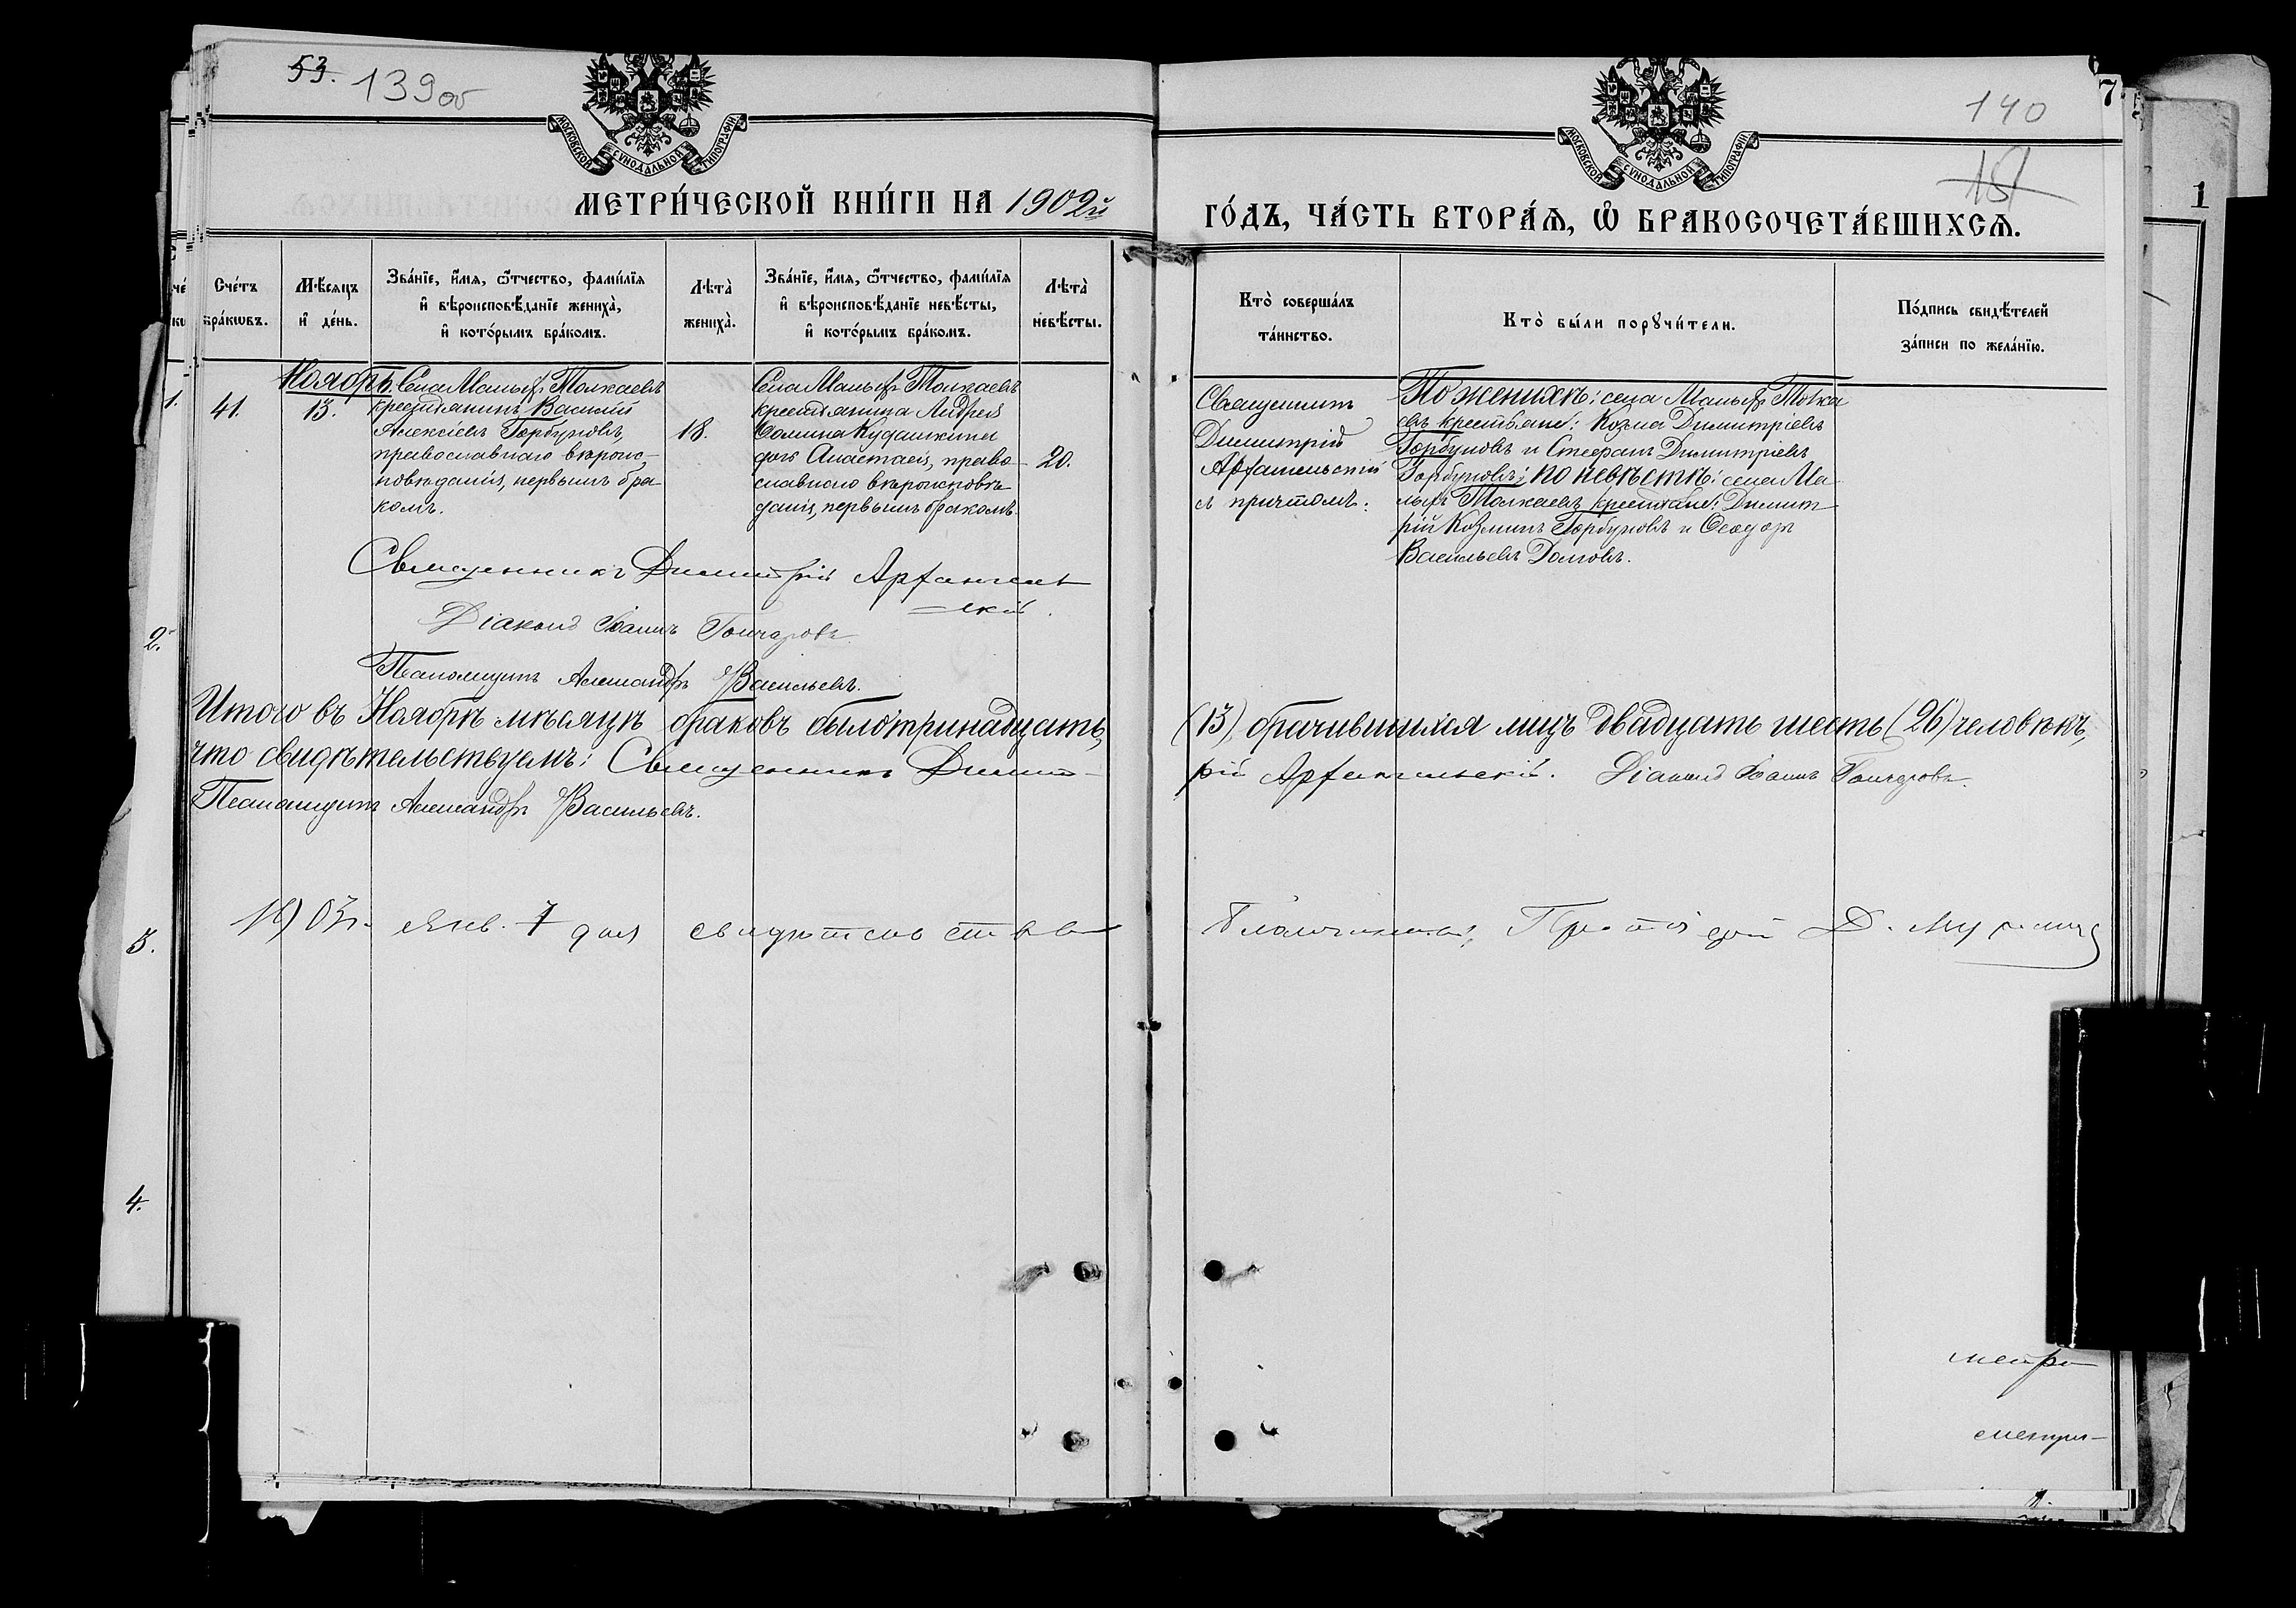 53. 139об
140
7
151
1
МОСКОВСКОЙ СѴНОДАЛЬНОЙ ТИПОГРАФІИ
МОСКОВСКОЙ СѴНОДАЛЬНОЙ ТИПОГРАФІИ
МЕТРИ́ЧЕСКОЙ КНИ́ГИ НА 1902й
ГО́ДЪ, ЧА́СТЬ ВТОРА́Ѧ, Ѡ҆ БРАКОСОЧЕТА́ВШИХСѦ.
Сче́тъ
бра́кѡвъ.
Мѣ́сяцъ
и҆ де́нь.
Зва́нїе, и҆́мя, ѻ҆́тчество, фами́лїя
и҆ вѣроисповѣ́данїе жениха̀,
и҆ кото́рымъ бра́комъ.
Лѣта̀
жениха̀.
Зва́нїе, и҆́мя, ѻ҆́тчество, фами́лїя
и҆ вѣроисповѣ́данїе невѣ́сты,
и҆ кото́рымъ бра́комъ.
Лѣта̀
невѣ́сты.
Кто̀ соверша́лъ
та́инство.
Кто̀ бы́ли порꙋчи́тели.
По́дпись свидѣ́телей
за́писи по жела́нїю.
41.
Ноябрь
13.
Села Малыхъ Толкаевъ
крестьянинъ Василій
Алексіевъ Горбуновъ,
православнаго вѣроис-
повѣданія, первымъ бра
комъ.
18.
Села Малыхъ Толкаевъ
крестьянина Андрея
Ѳомина Кудашкина
дочь Анастасія, право-
славнаго вѣроисповѣ
данія, первымъ бракомъ.
20.
Священникъ
Димитрій
Архангельскій
съ причтомъ.
По женихѣ: села Малыхъ Толка
евъ крестьяне: Козма Димитріевъ
Горбуновъ и Стефанъ Димитріевъ
Горбуновъ; по невѣстѣ: села Ма-
лыхъ Толкаевъ крестьяне: Димит
рій Козминъ Горбуновъ и Ѳеодоръ
Васильевъ Домовъ.
Священникъ Димитрій Архангель
=скій.
Діаконъ Іоаннъ Гончаровъ.
Псаломщикъ Александръ Васильевъ.
Итого въ Ноябрѣ мѣсяцѣ браковъ было тринадцать,
(13), брачившихся лицъ двадцать шесть (26) человѣкъ,
что свидѣтельствуемъ: Священникъ Димит-
рій Архангельскій. Діаконъ Іоаннъ Гончаровъ.
Псаломщикъ Александръ Васильевъ.
1903г. Янв. 7 дня свидѣтельствов
Благочинный, Протоіерей Д.
1.
2.
3.
4.
метри